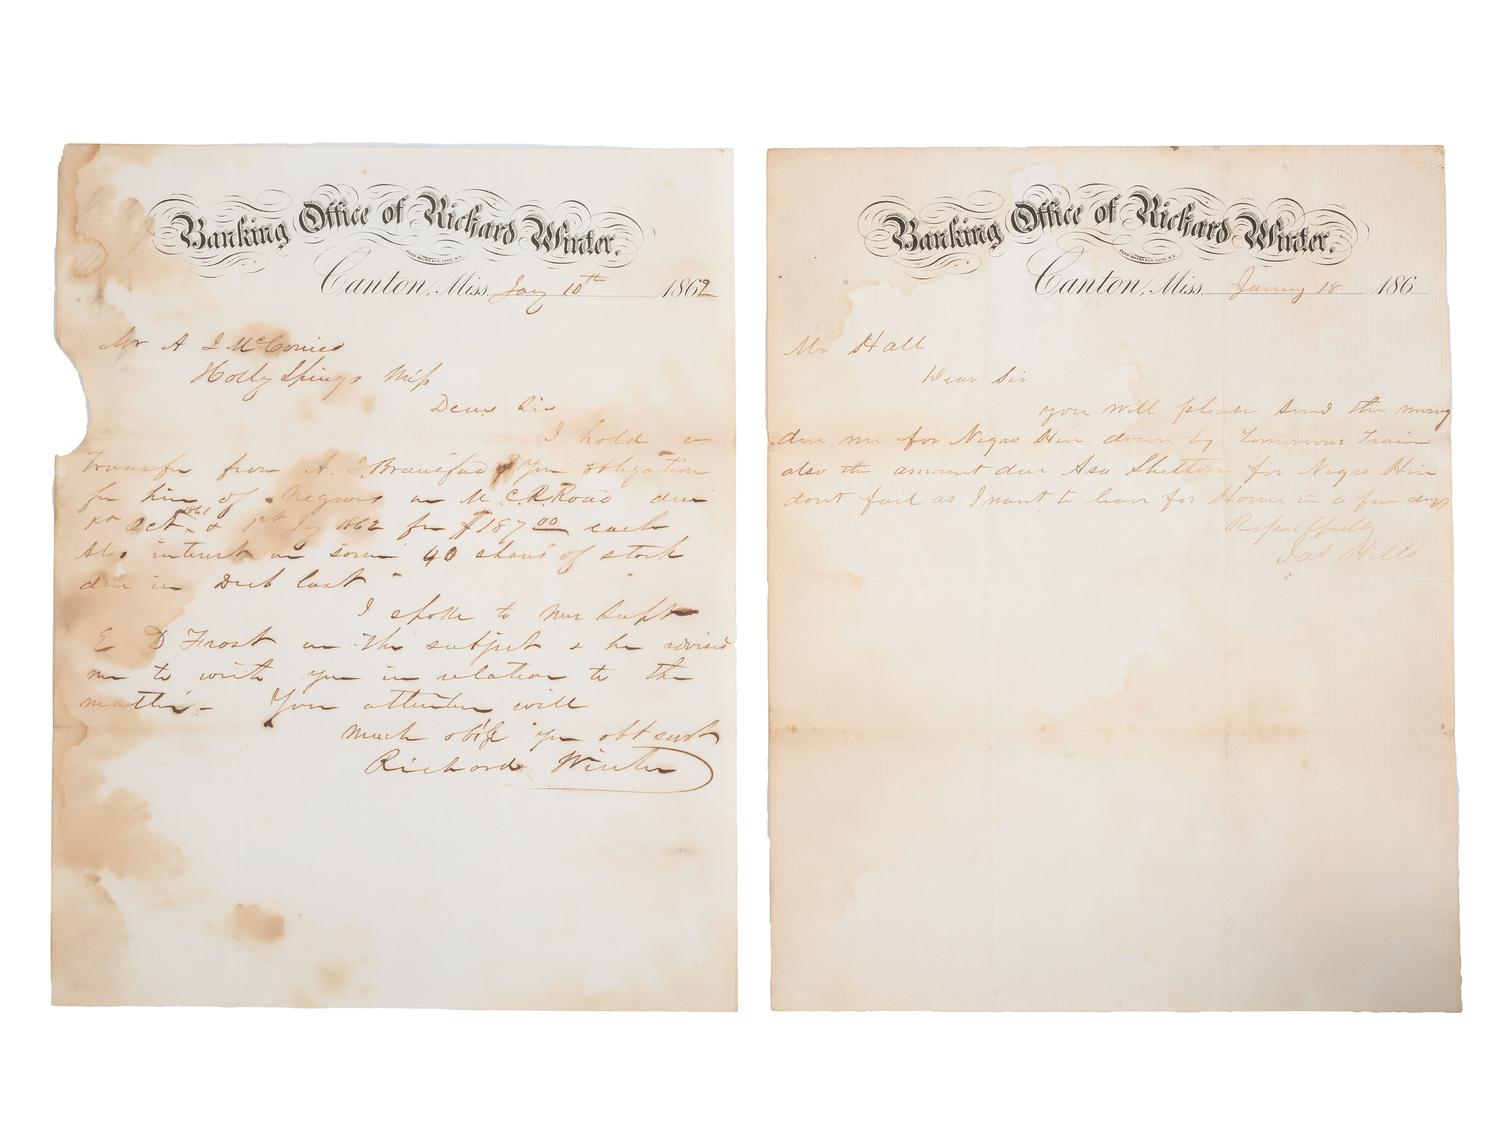 Banking Office of Richard Winter.
Canton, Miss. Jay 10th 1862
Mr A I McConico
Holly Springs Miss
Dear Sir
I hold a
transfer from A. Bransford of your obligation
for hire of Negroes on M. C. R. Road due
1st Oct 1861 & 1st Jy 1862 for $187.00 each
Also interest on some 40 shares of stock
due in last
I spoke to your Supt
E D Frost on the subject & he advised
me to write you in relation to the
matter. Your attention will
much oblige yr obt servt
Richard Winter
Banking Office of Richard Winter.
Canton, Miss. January 18 186
Mr Hall
Dear Sir
you will please send the money
due me for Negro Hire down by Tomorrows Train
also the amount due Asa Shelton for Negro Hire
dont fail as I want to leave for Home in a few days
Respectfully
Jas Wells